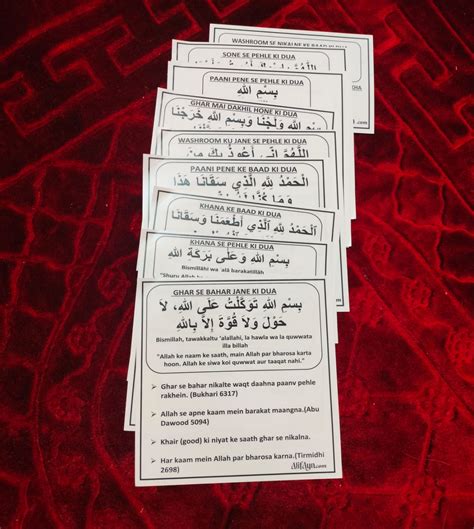 WASHROOM SE NIKALNE KE BAAD KI DUA
SONE SE PEHLE KI DUA
PAANI PENE SE PEHLE KI DUA
بِسْمِ اللهِ
GHAR MAI DAKHIL HONE KI DUA
بِسْمِ اللهِ وَلَجْنَا وَبِسْمِ اللهِ خَرَجْنَا
WASHROOM KU JANE SE PEHLE KI DUA
اللَّهُمَّ إِنِّي أَعُوذُ بِكَ مِنَ
PAANI PENE KE BAAD KI DUA
الْحَمْدُ لِلَّهِ الَّذِي سَقَانَا هَذَا
KHANA KE BAAD KI DUA
الْحَمْدُ لِلَّهِ الَّذِي أَطْعَمَنَا وَسَقَانَا
KHANA SE PEHLE KI DUA
بِسْمِ اللهِ وَعَلَى بَرَكَةِ اللهِ
Bismillāhi wa ʿalā barakatillāh
"Shuru Allah
GHAR SE BAHAR JANE KI DUA
بِسْمِ اللهِ تَوَكَّلْتُ عَلَى اللهِ، لَا
حَوْلَ وَلَا قُوَّةَ إِلَّا بِاللهِ
Bismillah, tawakkaltu 'alallahi, la hawla wa la quwwata
illa billah
"Allah ke naam ke saath, main Allah par bharosa karta
hoon. Allah ke siwa koi quwwat aur taaqat nahi."
➢ Ghar se bahar nikalte waqt daahna paanv pehle
rakhein. (Bukhari 6317)
➢ Allah se apne kaam mein barakat maangna.(Abu
Dawood 5094)
➢ Khair (good) ki niyat ke saath ghar se nikalna.
➢ Har kaam mein Allah par bharosa karna.(Tirmidhi
2698)
AlifAya.com